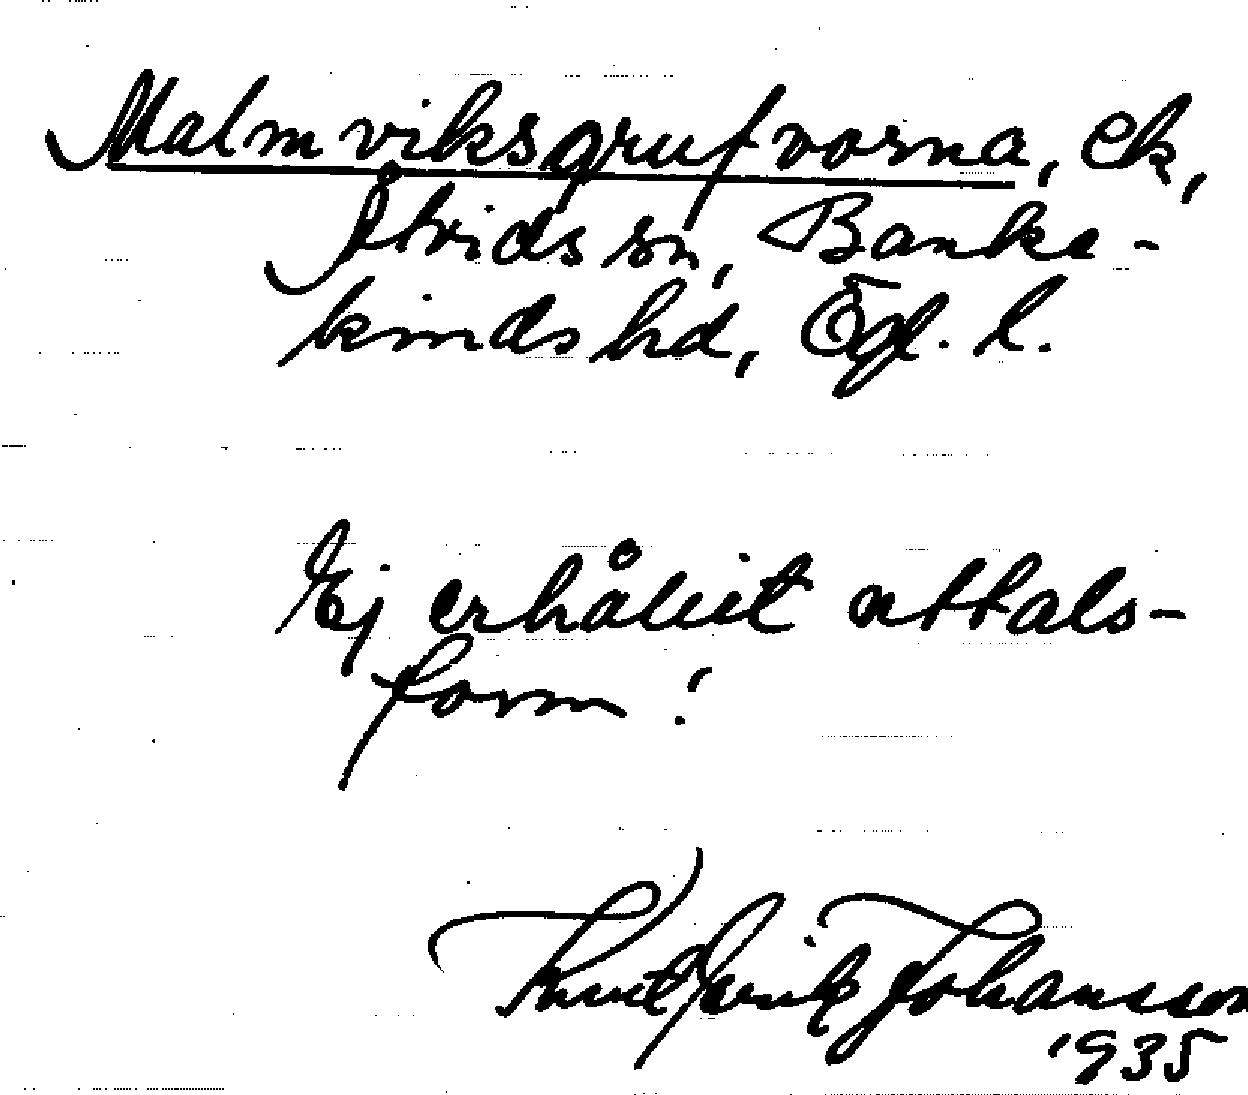 Malmviksgrufvorna, ek,
Åtvids sn, Banke-
kinds hd, Ögl. l.
Ej erhållit uttals-
form!
Knut Erik Johansson
1935